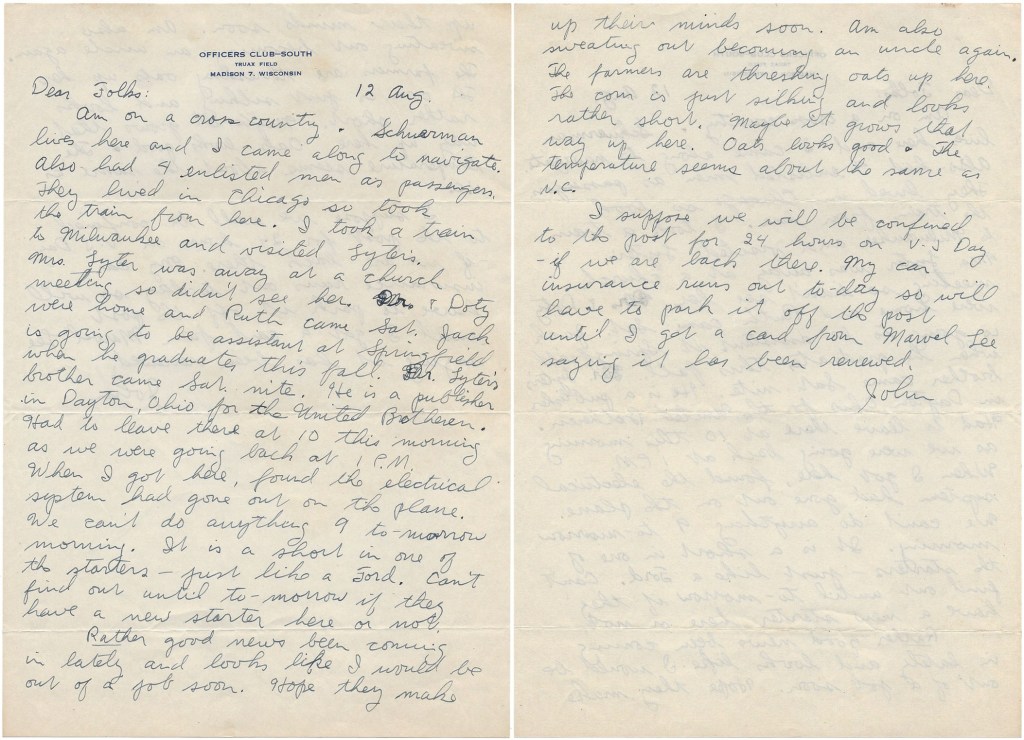 OFFICERS CLUB-SOUTH
TRUAX FIELD
MADISON 7, WISCONSIN
Dear Folks: 12 Aug.
Am on a cross country. Schuerman
lives here and I came along to navigate.
Also had 4 enlisted men as passengers.
They lived in Chicago so took
the train from here. I took a train
to Milwaukee and visited Syters.
Mrs. Syter was away at a church
meeting so didn't see her. & Doty
were home and Ruth came Sat. Jack
is going to be assistant at Springfield
when he graduates this fall. Dr. Syter's
brother came Sat. nite. He is a publisher
in Dayton, Ohio for the United Betheren.
Had to leave there at 10 this morning
as we were going back at 1 P.M.
When I got here, found the electrical
system had gone out on the plane.
We can't do anything 9 to-morrow
morning. It is a short in one of
the starters – just like a Ford. Can't
find out until to-morrow if they
have a new starter here or not.
Rather good news been coming
in lately and looks like I would be
out of a job soon. Hope they make
up their minds soon. Am also
sweating out becoming an uncle again.
The farmers are threshing oats up here.
The corn is just silking and looks
rather short. Maybe it grows that
way up here. Oats looks good. The
temperature seems about the same as
N.C.
I suppose we will be confined
to the post for 24 hours on V-J Day
- if we are back there. My car
insurance runs out to-day so will
have to park it off the post
until I get a card from Marvel Lee
saying it has been renewed.
John